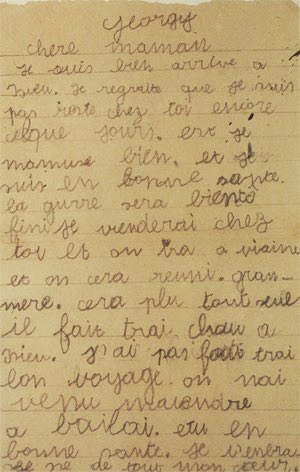 Georgy
chere maman
Je suis bien arrive a
Dieu. Je regraite que je suis
pas reste chez toi encore
celque jours. est je
mamuse bien. et je
suis en bonne sante.
la gurre sera biento
fini je vienderai chez
toi et on ira a viaine
et on cera reuni. gran-
mere. cera plu tout seul
il fait trai chau a
Dieu. J'ai pas fait trai
bon voyage. on nai
venu matendre
a . etu en
bonne sante. Je
de tout mon cœur